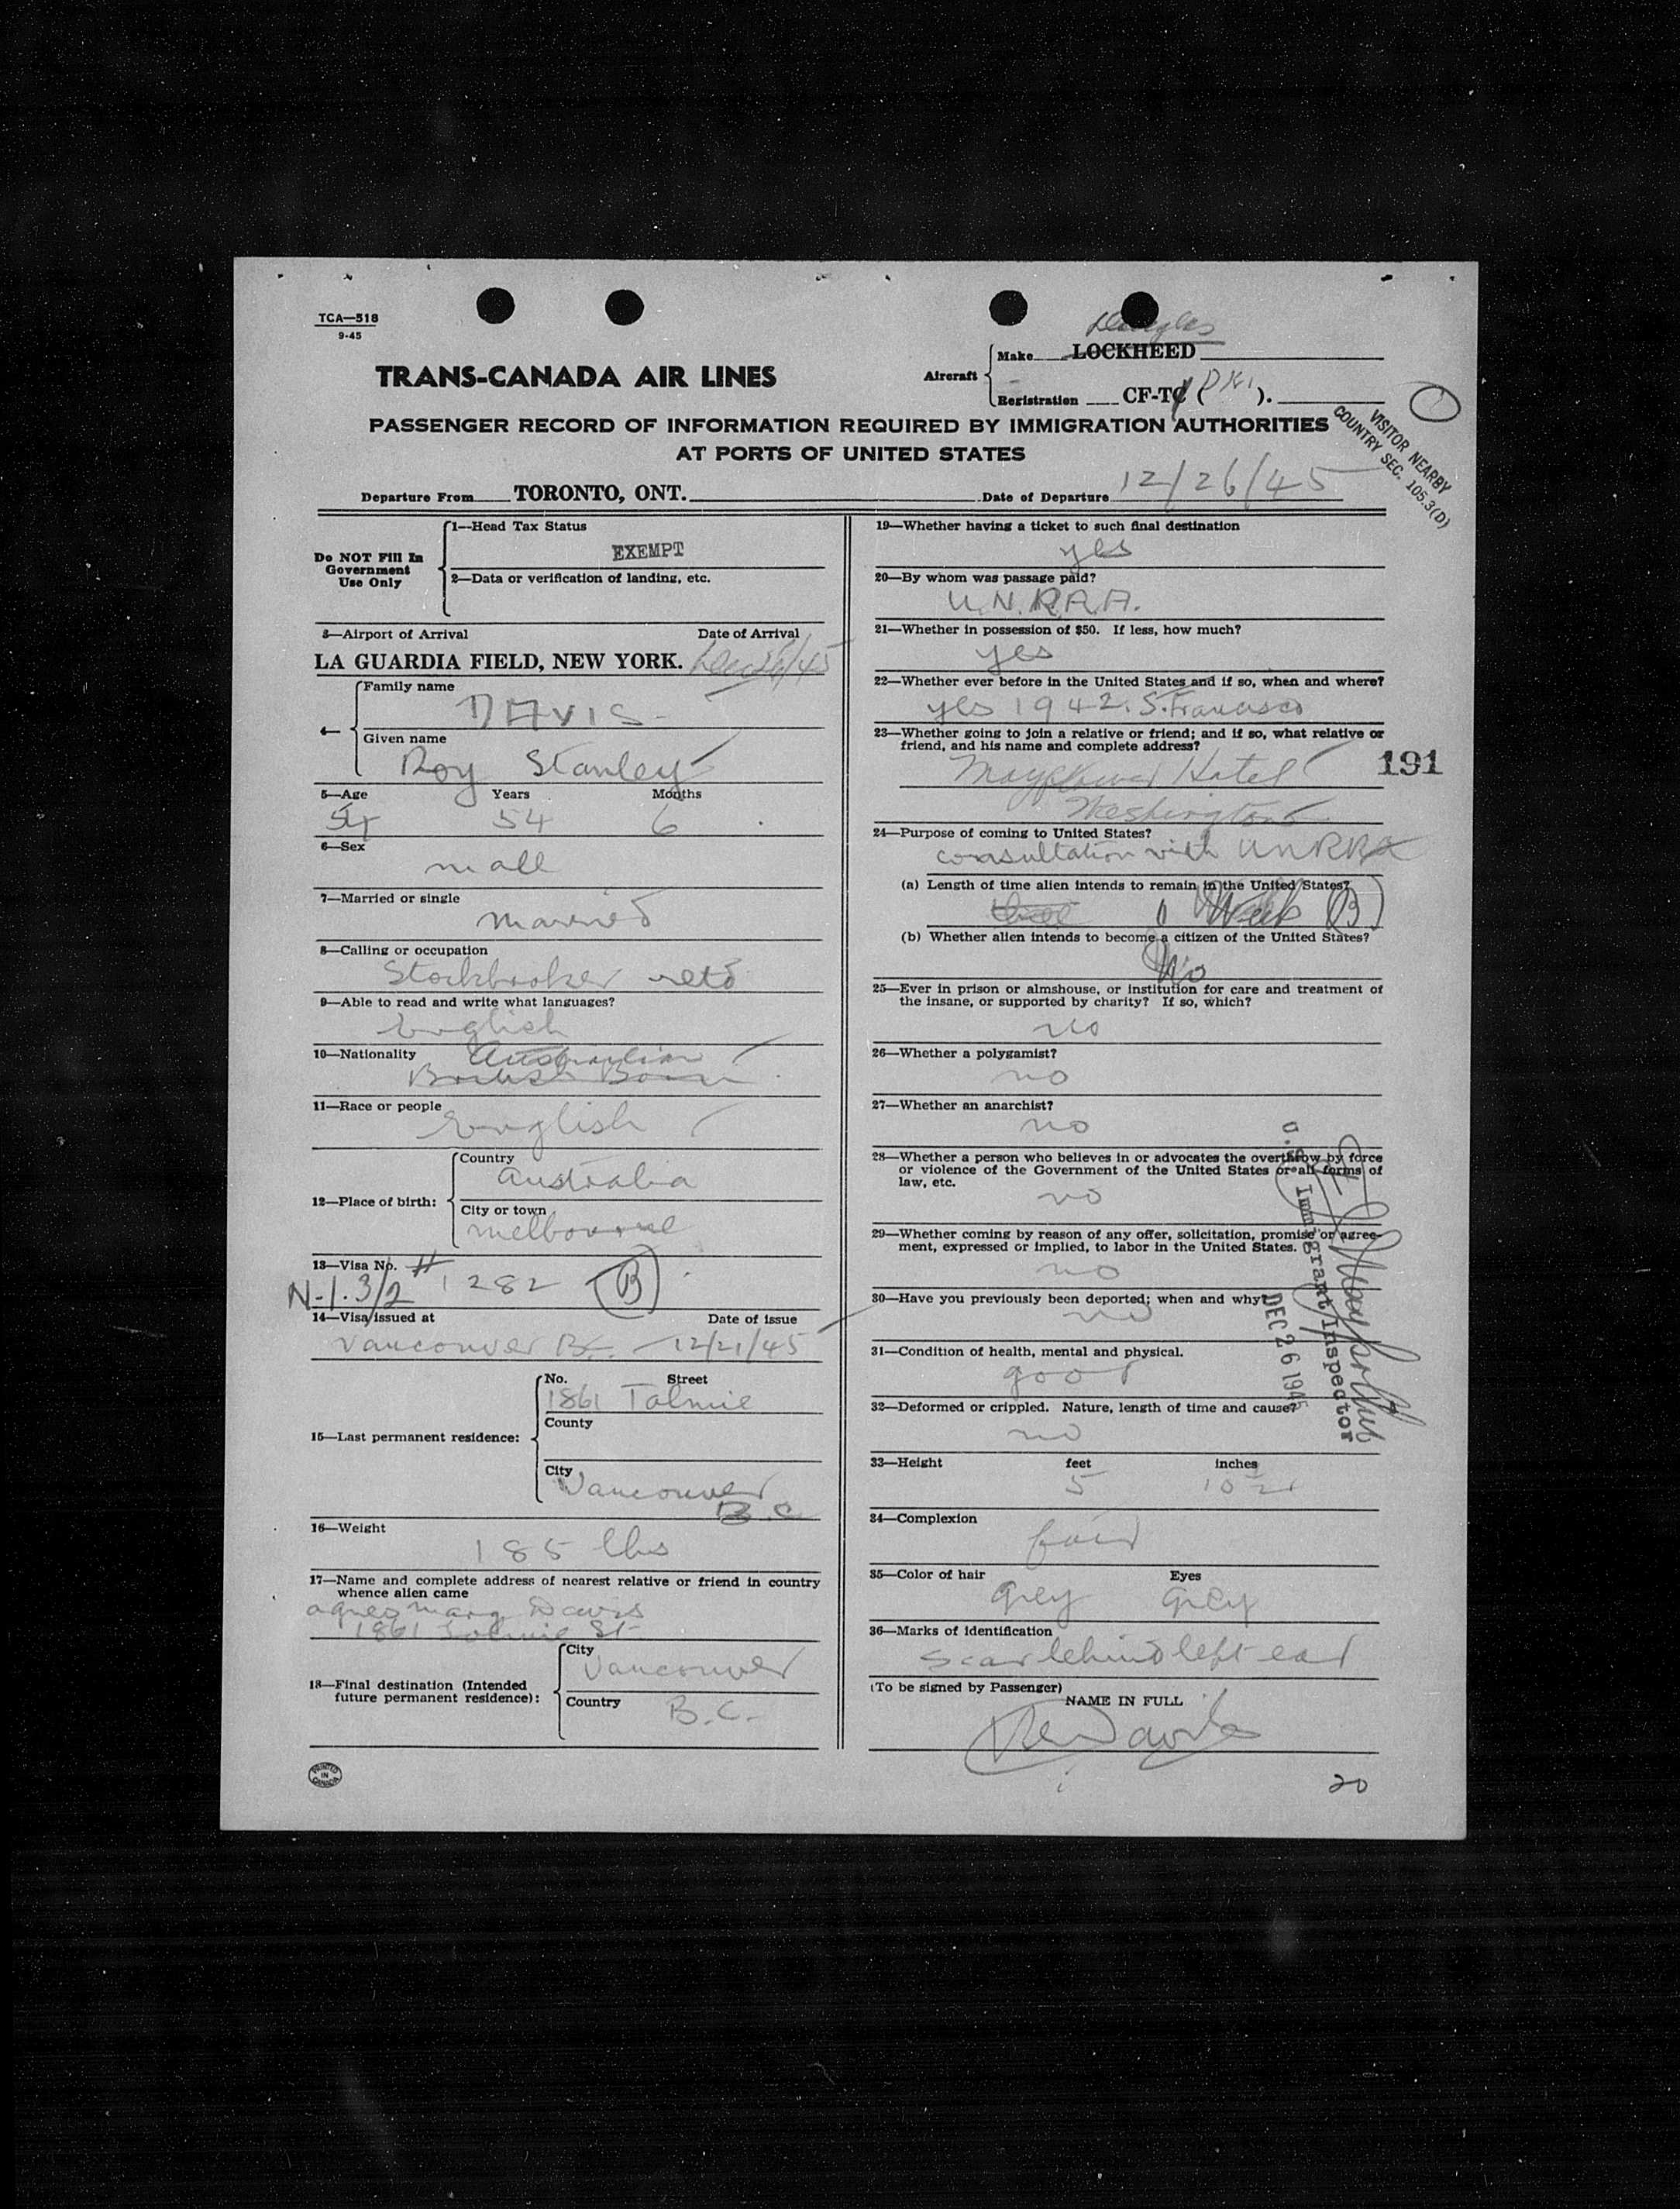 TCA—518
9-45
Douglas
Make LOCKHEED
TRANS-CANADA AIR LINES
Aircraft
Registration CF-TC ( ).
VISITOR NEARBY
COUNTRY SEC. 105.3(D)
PASSENGER RECORD OF INFORMATION REQUIRED BY IMMIGRATION AUTHORITIES
AT PORTS OF UNITED STATES
Departure From TORONTO, ONT. Date of Departure 12/26/45
Do NOT Fill In
Government
Use Only
1—Head Tax Status
EXEMPT
2—Data or verification of landing, etc.
3—Airport of Arrival Date of Arrival
LA GUARDIA FIELD, NEW YORK. Dec 26/45
4—
Family name
DAVIS
Given name
Roy Stanley
5—Age Years Months
54 54 6
6—Sex
male
7—Married or single
married
8—Calling or occupation
Stockbroker retd
9—Able to read and write what languages?
English
10—Nationality Australian
British Born
11—Race or people
English
12—Place of birth:
Country
Australia
City or town
melbourne
13—Visa No. # 1282 (B)
N-1. 3/2
14—Visa issued at Date of issue
Vancouver B.C. 12/21/45
15—Last permanent residence:
No. Street
1861 Tolmie
County
City
Vancouver
B.C.
16—Weight
185 lbs
17—Name and complete address of nearest relative or friend in country
whence alien came
agnes marg Davis
1861 Tolmie St
18—Final destination (Intended
future permanent residence):
City
Vancouver
Country
B.C.
PRINTED
IN
CANADA
19—Whether having a ticket to such final destination
yes
20—By whom was passage paid?
U.N.R.R.A.
21—Whether in possession of $50. If less, how much?
yes
22—Whether ever before in the United States and if so, when and where?
yes 1942. S. Francisco
23—Whether going to join a relative or friend; and if so, what relative or
friend, and his name and complete address?
191
Mayflower Hotel
Washington
24—Purpose of coming to United States?
consultation with UNRRA
(a) Length of time alien intends to remain in the United States?
1 Week (B)
(b) Whether alien intends to become a citizen of the United States?
No
25—Ever in prison or almshouse, or institution for care and treatment of
the insane, or supported by charity? If so, which?
no
26—Whether a polygamist?
no
27—Whether an anarchist?
no
28—Whether a person who believes in or advocates the overthrow by force
or violence of the Government of the United States or all forms of
law, etc.
no
29—Whether coming by reason of any offer, solicitation, promise or agree-
ment, expressed or implied, to labor in the United States.
no
30—Have you previously been deported; when and why?
no
31—Condition of health, mental and physical.
good
32—Deformed or crippled. Nature, length of time and cause?
no
U.S. Immigrant Inspector
DEC 26 1945
33—Height feet inches
5 10½
34—Complexion
fair
35—Color of hair Eyes
grey grey
36—Marks of identification
scar behind left ear
(To be signed by Passenger)
NAME IN FULL
Davis
20